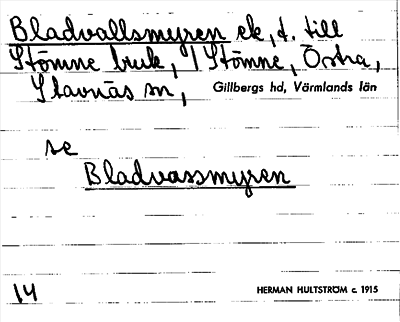 Bladvallsmyren ek, t. till
Stömne bruk, 1 Stömne, Östra,
Stavnäs sn, Gillbergs hd, Värmlands län
se
Bladvassmyren
14 HERMAN HULTSTRÖM c. 1915